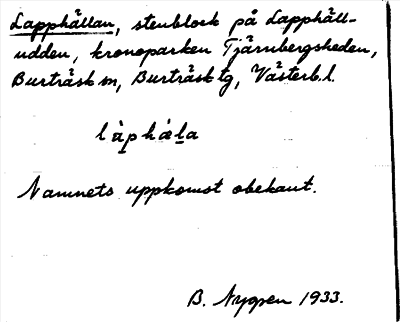 Lapphällan, stenblock på Lapphäll-
udden, kronoparken Tjärnbergsheden,
Burträsk sn, Burträsk tg, Västerb. l.
làphæla
Namnets uppkomst obekant.
B. Nygren 1933.